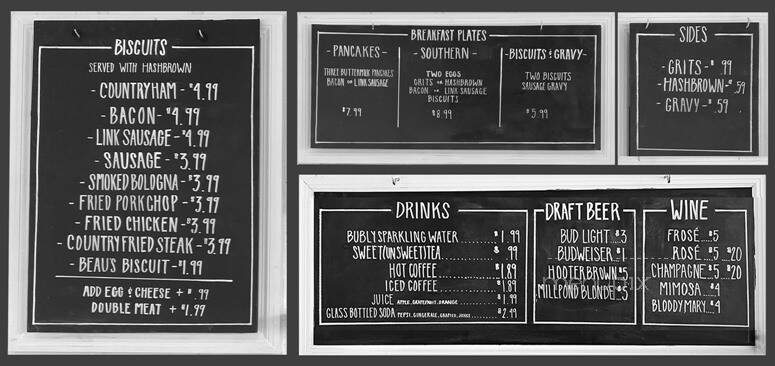 BISCUITS
SERVED WITH HASHBROWN
- COUNTRY HAM - $4.99
- BACON - $4.99
- LINK SAUSAGE - $4.99
- SAUSAGE - $3.99
- SMOKED BOLOGNA - $3.99
- FRIED PORK CHOP - $3.99
- FRIED CHICKEN - $3.99
- COUNTRY FRIED STEAK - $3.99
- BEAU'S BISCUIT - $1.99
ADD EGG & CHEESE + $.99
DOUBLE MEAT + $1.99
BREAKFAST PLATES
- PANCAKES -
THREE BUTTERMILK PANCAKES
BACON OR LINK SAUSAGE
$7.99
- SOUTHERN -
TWO EGGS
GRITS OR HASHBROWN
BACON OR LINK SAUSAGE
BISCUITS
$8.99
- BISCUITS & GRAVY -
TWO BISCUITS
SAUSAGE GRAVY
$5.99
SIDES
- GRITS - $.99
- HASHBROWN - $.59
- GRAVY - $.59
DRINKS
BUBLY SPARKLING WATER ........ $1.99
SWEET/UNSWEET TEA ........ $.99
HOT COFFEE ........ $1.89
ICED COFFEE ........ $1.89
JUICE APPLE, GRAPEFRUIT, ORANGE ........ $1.99
GLASS BOTTLED SODA PEPSI, GINGERALE, ........ $2.49
DRAFT BEER
BUD LIGHT..$3
BUDWEISER..$1
HOOTER BROWN $5
MILLPOND BLONDE..$5
WINE
FROSÉ....$5
ROSÉ....$5 $20
CHAMPAGNE..$5 $20
MIMOSA..$4
BLOODY MARY..$4